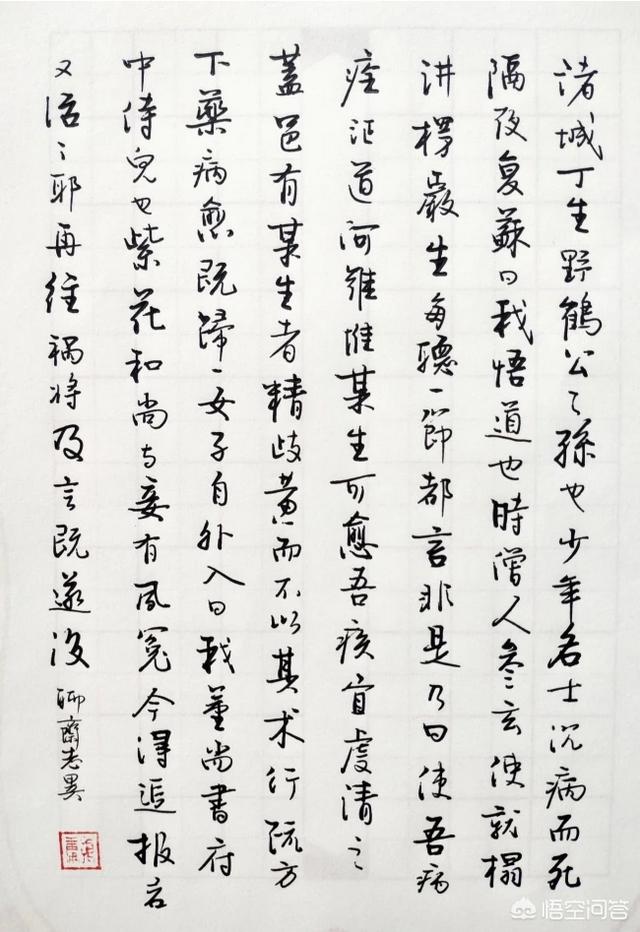 诸城丁生野鶴公之孫也少年名士沉病而死
隔夜复蘇曰我悟道也時僧人參玄使就榻
讲楞嚴生每聽一節都言非是乃曰使吾病
痊证道何難惟某生可愈吾疾宜虔请之
蓋邑有某生者精歧黄而不以其术行疏方
下藥病愈既歸一女子自外入曰我董尚書府
中侍兒也紫花和尚与妾有夙冤今得追报君
又活之耶再往禍将及言既遂没
聊齋志異
悟空问答